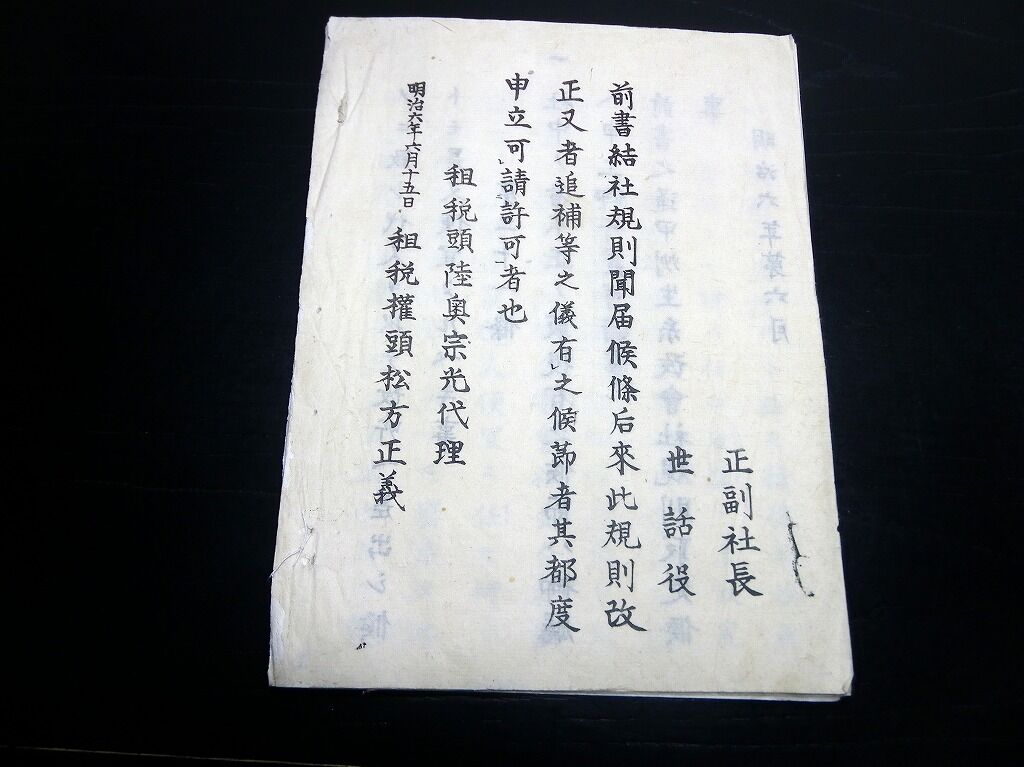 正副社長
世話役
前書結社規則聞届候條后來此規則改
正又者追補等之儀有」之候節者其都度
申立可」請許可者也
租税頭陸奥宗光代理
明治六年六月十五日 租税權頭松方正義